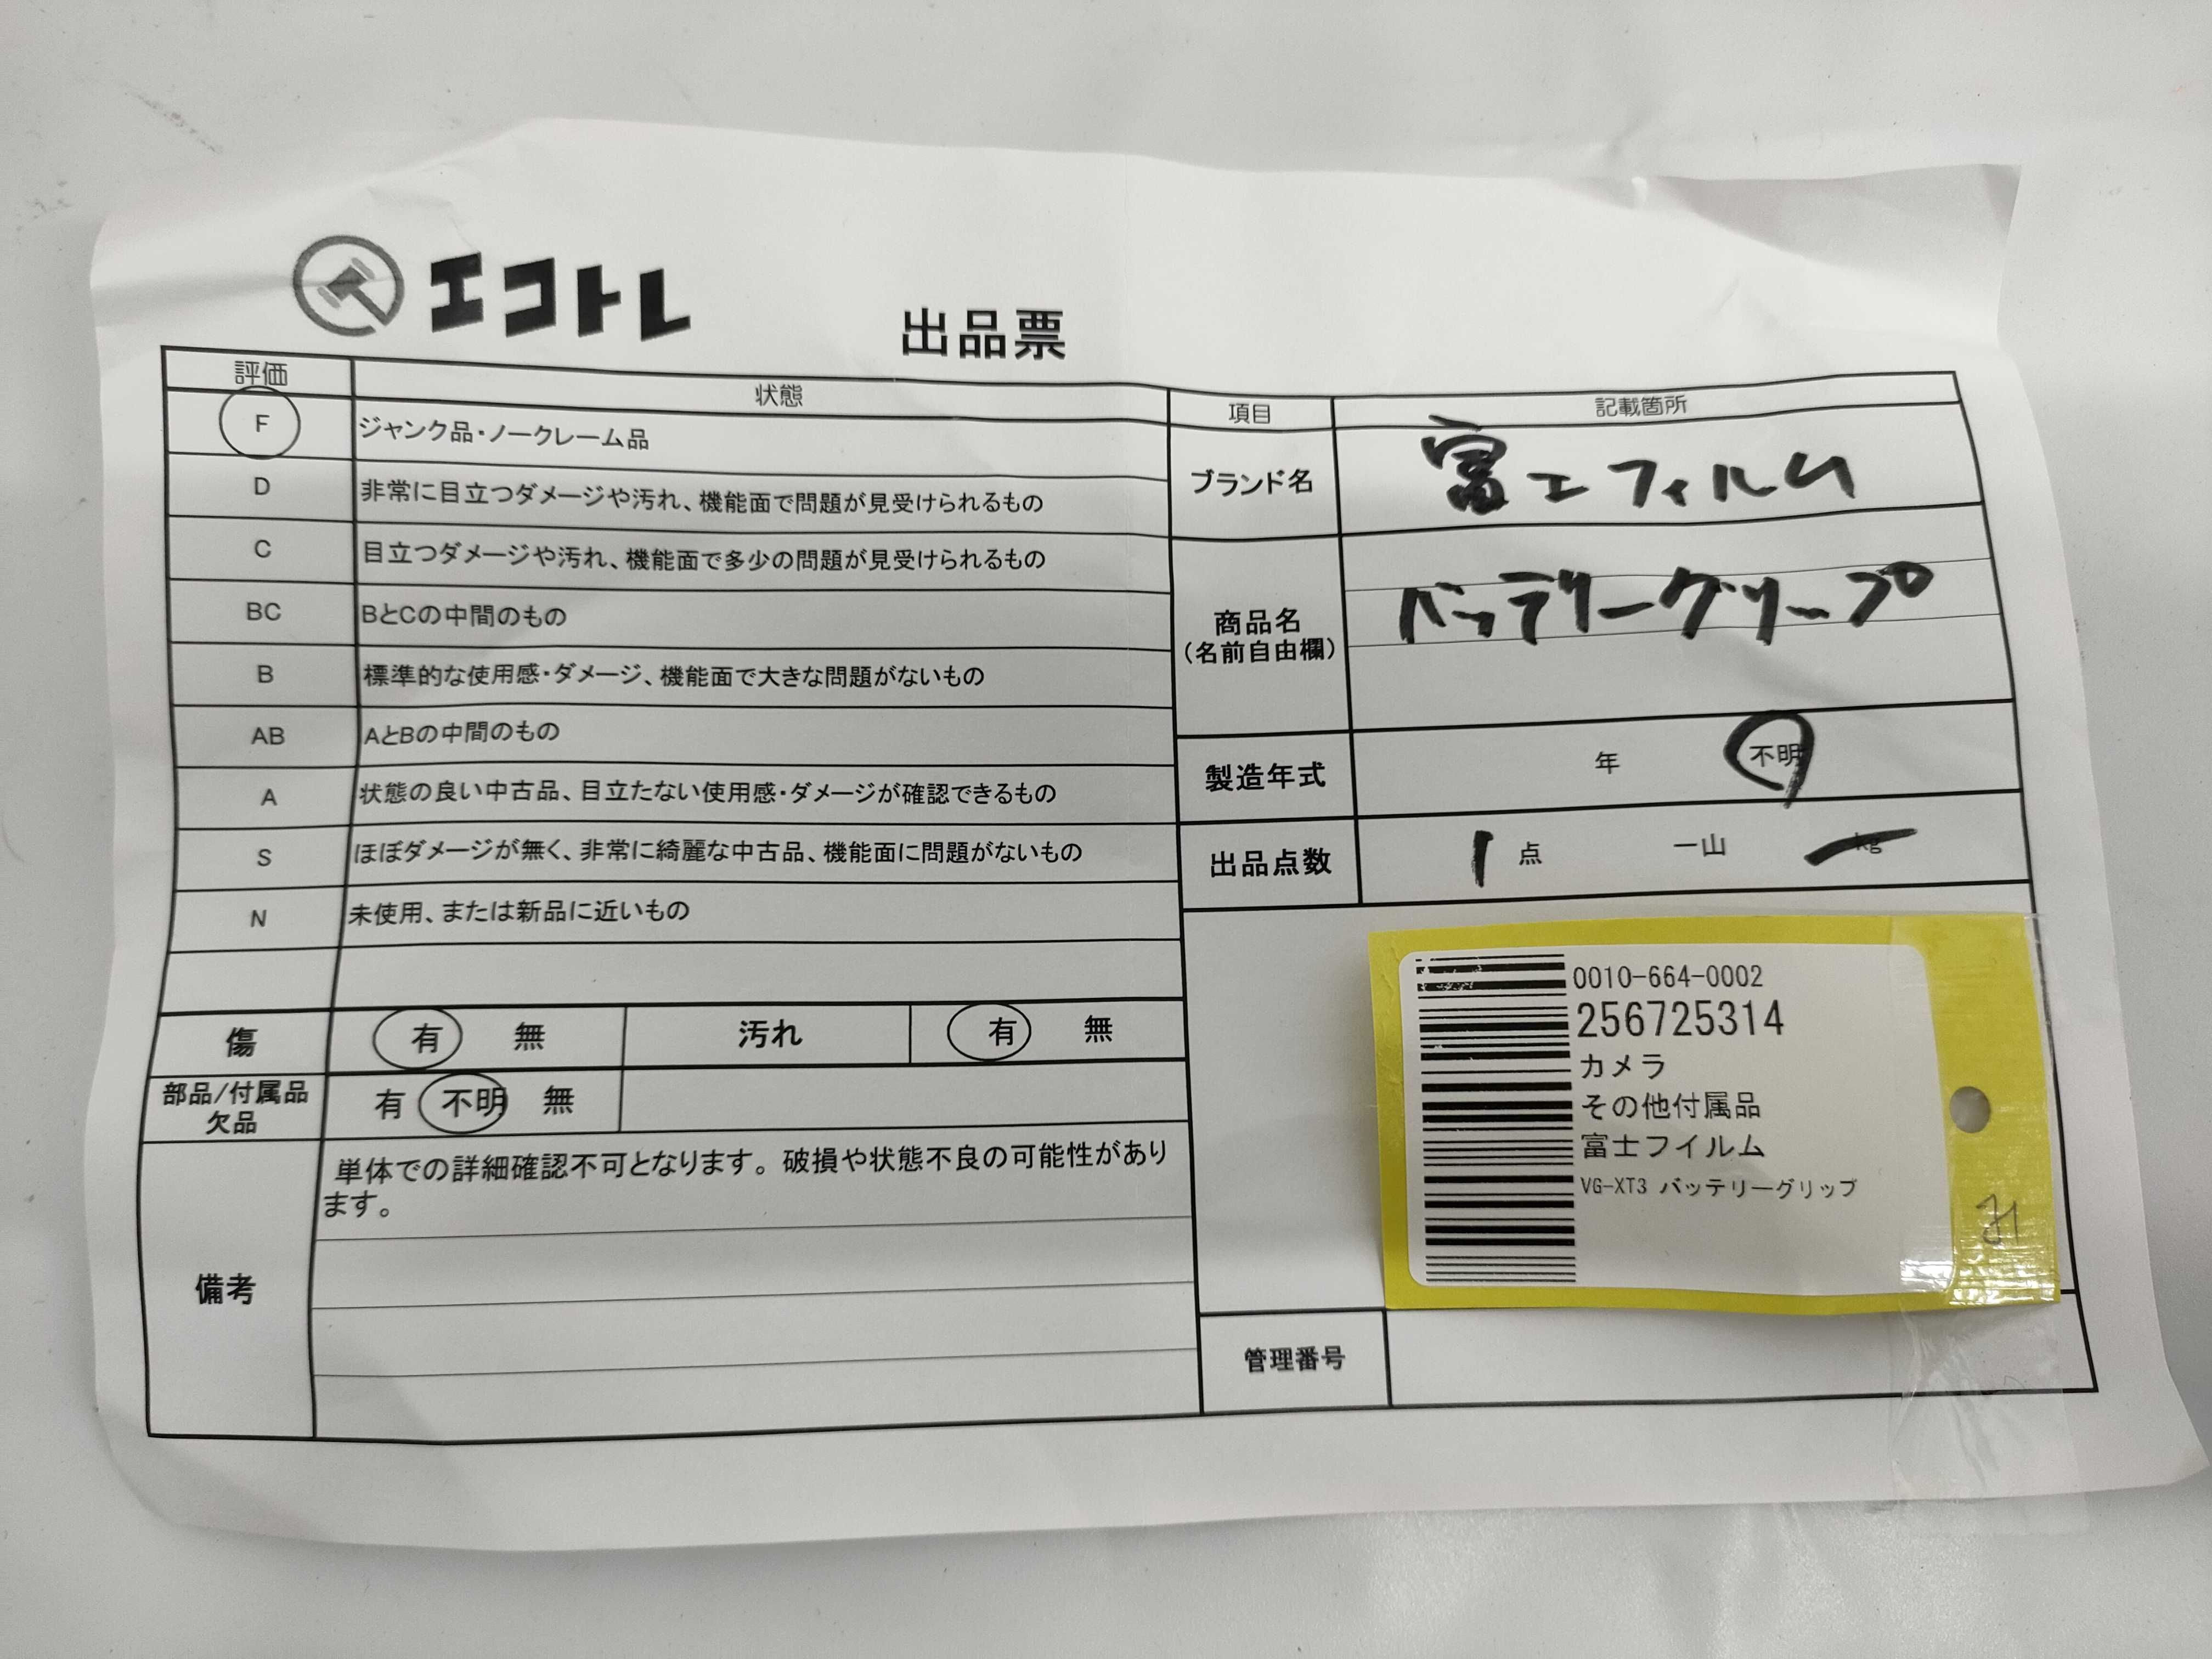 エコトレ
出品票
評価 状態
F ジャンク品・ノークレーム品
D 非常に目立つダメージや汚れ、機能面で問題が見受けられるもの
C 目立つダメージや汚れ、機能面で多少の問題が見受けられるもの
BC BとCの中間のもの
B 標準的な使用感・ダメージ、機能面で大きな問題がないもの
AB AとBの中間のもの
A 状態の良い中古品、目立たない使用感・ダメージが確認できるもの
S ほぼダメージが無く、非常に綺麗な中古品、機能面に問題がないもの
N 未使用、または新品に近いもの
傷 有 無 汚れ 有 無
部品/付属品
欠品
有 不明 無
備考
単体での詳細確認不可となります。破損や状態不良の可能性があり
ます。
項目 記載箇所
ブランド名 富エフィルム
商品名
(名前自由欄)
バッテリーグリップ
製造年式 年 不明
出品点数 1 点 一山 kg
0010-664-0002
256725314
カメラ
その他付属品
富士フイルム
VG-XT3 バッテリーグリップ
管理番号